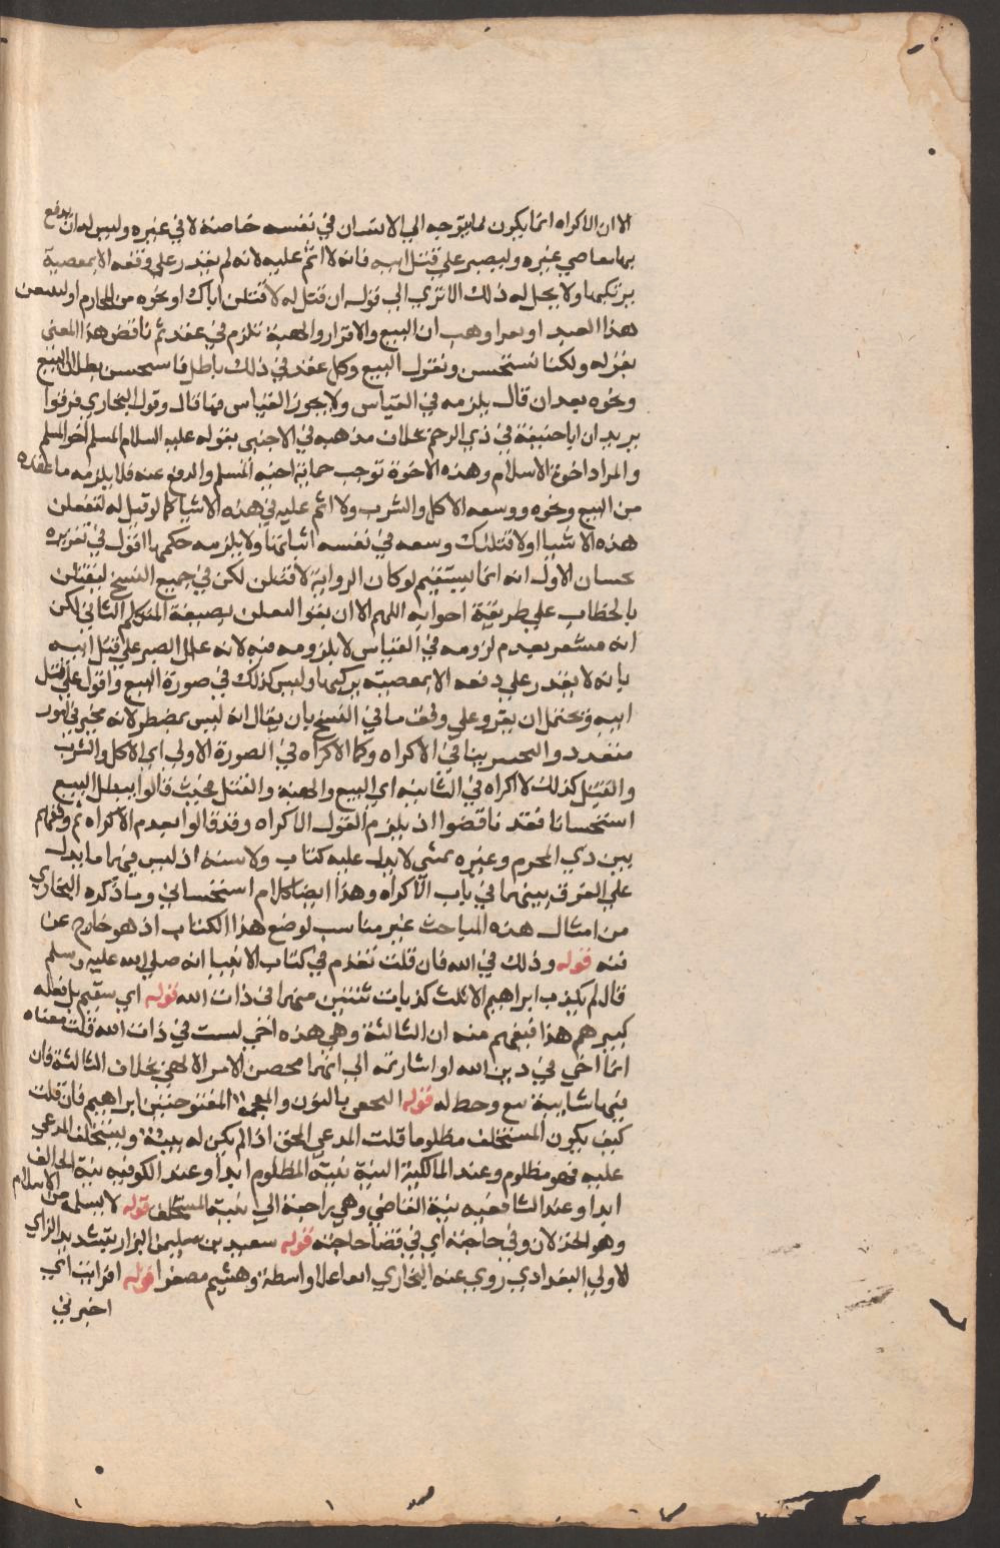 الا ان الاكراه انما يكون لما يتوجه الي الانسان في نفسه خاصة لا في غيره وليس له ان يدفع
بها معاصي غيره وليصبر علي قتل ابيه فانه لا اثم عليه لانه لم يقدر علي دفعه الا بمعصية
يرتكبها ولا يحل له ذلك الا تري الي قوله ان قتل له لا قتلن اباك او نحوه من المحارم او لتبيعن
هذا العبد او تهب ان البيع والاقرار والهبة تلزم في عقد ثم ناقض هذا المعني
بقوله ولكنا نستحسن ونقول البيع وكل عقد في ذلك باطل فاستحسن بطلان البيع
ونحوه بعد ان قال يلزمه في القياس ولا يجوز القياس فيها قال وقول البخاري فرقوا
يريد ان ابا حنيفة في ذي الرحم بخلاف مذهبه في الاجنبي بقوله عليه السلام المسلم اخو المسلم
والمراد اخوة الاسلام وهذه الاخوة توجب حماية اخيه المسلم والدفع عنه فلا يلزمه ما عقده
من البيع ونحوه ووسعه الاكل والشرب ولا اثم عليه في هذه الاشيا كما لو قيل له لتفعلن
هذه الاشيا او لا قتلنك وسعه في نفسه اتيانها ولا يلزمه حكمها اقول في تقريره
بحثان الاول انه انما يستقيم لو كان الرواية لا قتلن لكن في جميع النسخ لتقتلن
بالخطاب علي طريقة اخواته اللهم الا ان يقرا بصيغة المتكلم الثاني لكن
انه مشعر بعدم لزومه في القياس لا بلزومه فيه لانه علل الصبر علي قتل ابيه
بانه لا يقدر علي دفعه الا بمعصية يركبها وليس كذلك في صورة البيع واقول علي قتل
ابيه ويحتمل ان يقرر علي وفق ما في النسخ بان يقال انه ليس بمضطر لانه مخير في امور
متعدد والتخيير ينافي الاكراه وكما الاكراه في الصورة الاولي اي الاكل والشرب
والقتل كذلك لا اكراه في الثانية اي البيع والهبة والقتل فحيث قالوا يبطل البيع
استحسانا فقد ناقضوا اذ يلزم القول الاكراه وقد قالوا بعدم الاكراه ثم فرقهم
بين ذي المحرم وغيره بشي لا يدل عليه كتاب ولا سنة اذ ليس فيهما ما يدل
علي الفرق بينهما في باب الاكراه وهذا ايضا كلام استحساني وما ذكره البخاري
من امثال هذه المباحث غير مناسب لوضع هذا الكتاب اذ هو خارج عن
فنه قوله وذلك في الله فان قلت تقدم في كتاب الانبيا انه صلي الله عليه وسلم
قال لم يكذب ابراهيم الا ثلث كذبات ثنتين منها في ذات الله قوله اني سقيم بل فعله
كبيرهم هذا فيفهم منه ان الثالثة وهي هذه اختي ليست في ذات الله قلت معناه
انها اختي في دين الله او اشارته الي انهما محض الامر الالهي بخلاف الثالثة فان
فيها شايبة نفع وحظ له قوله النخعي بالنون والمعجمة المفتوحتين ابراهيم فان قلت
كيف يكون المستحلف مظلوما قلت المدعي المحق اذا لم يكن له بينة ويستحلف المدعي
عليه فهو مظلوم وعند المالكية النية نية المظلوم ابدا وعند الكوفية نية الحالف
ابدا وعند الشافعية نية القاضي وهي راجعة الي نية المستحلف قوله لا يسلمه من الاسلام
وهو الخذلان وفي حاجته اي في قضا حاجته قوله سعيد بن سليمن البزار بتشديد الزاي
الاولي البغدادي روي عنه البخاري انفا بلا واسطة وهشيم مصغرا قوله افرايت اي
اخبرني